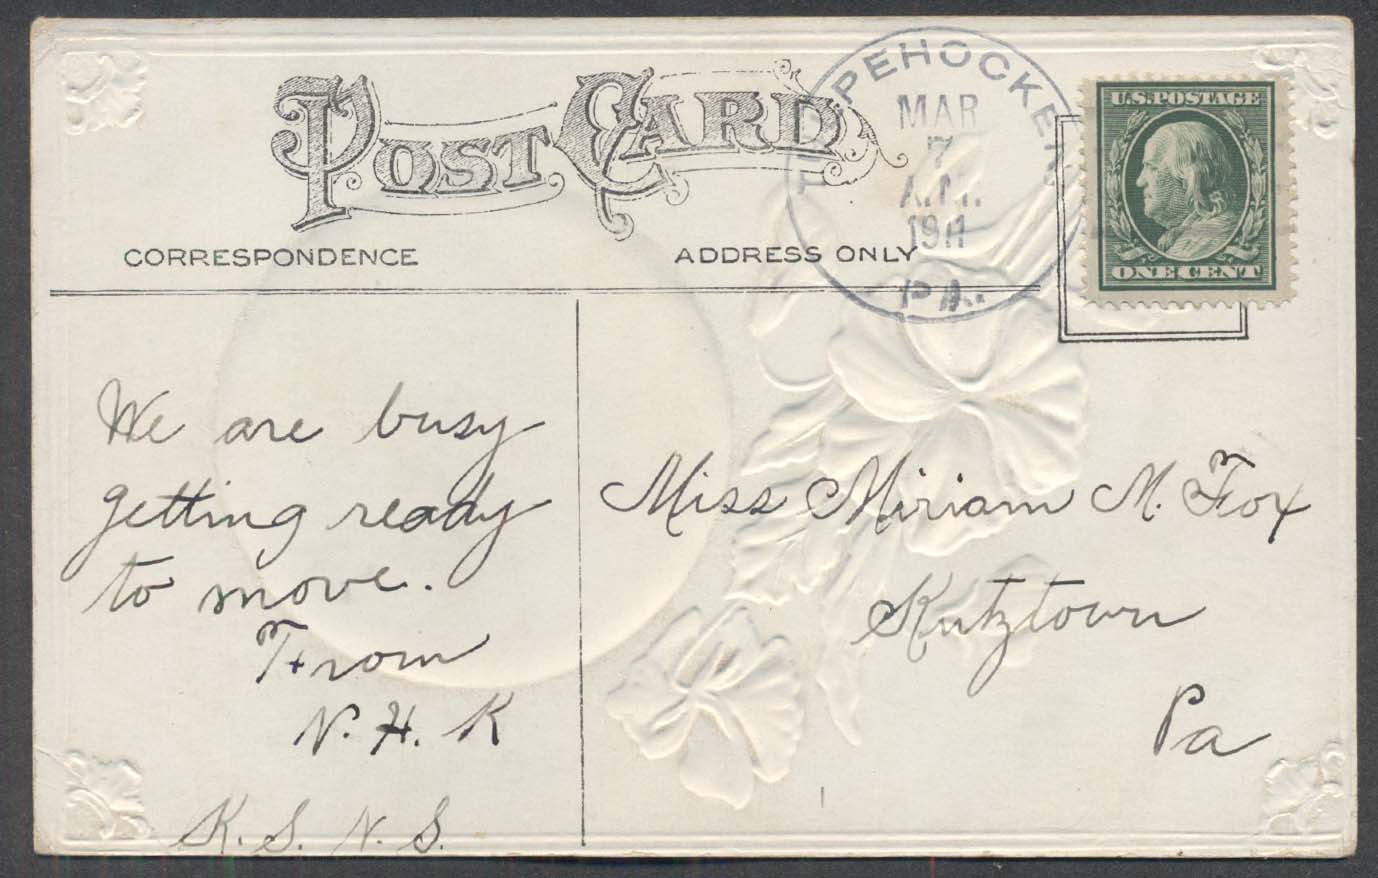 POST CARD
CORRESPONDENCE
ADDRESS ONLY
PEHOCKEN
MAR
7
A.M.
1911
PA.
U.S. POSTAGE
ONE CENT
We are busy
getting ready
to move.
From
N. H. K
K. S. N. S.
Miss Miriam M. Fox
Kutztown
Pa